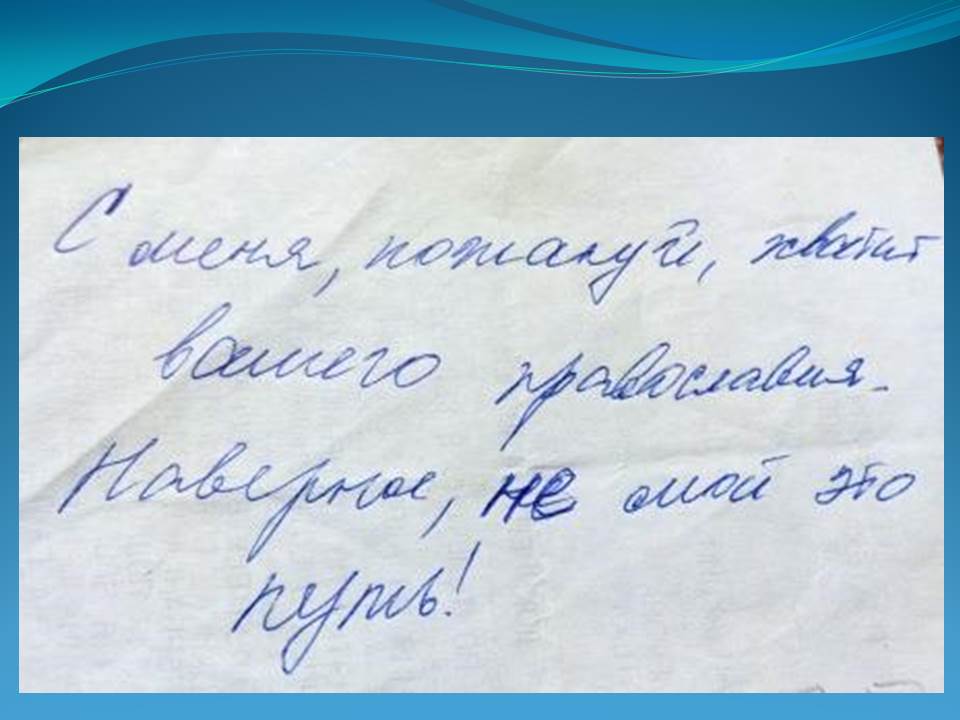 С меня, пожалуй, хватит
вашего православия.
Наверное, не мой это
путь!